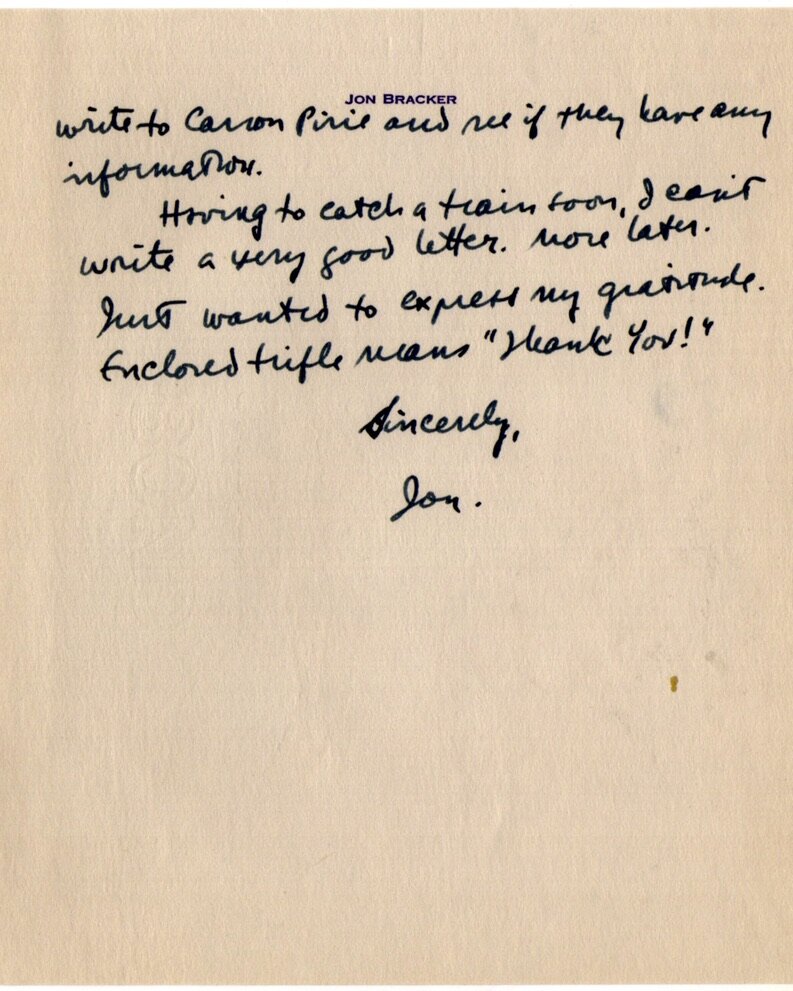 JON BRACKER
write to Carson Pirie and see if they have any
information.
Having to catch a train soon, I can't
write a very good letter. More later.
Just wanted to express my gratitude.
Enclosed trifle means "Thank You!"
Sincerely,
Jon.